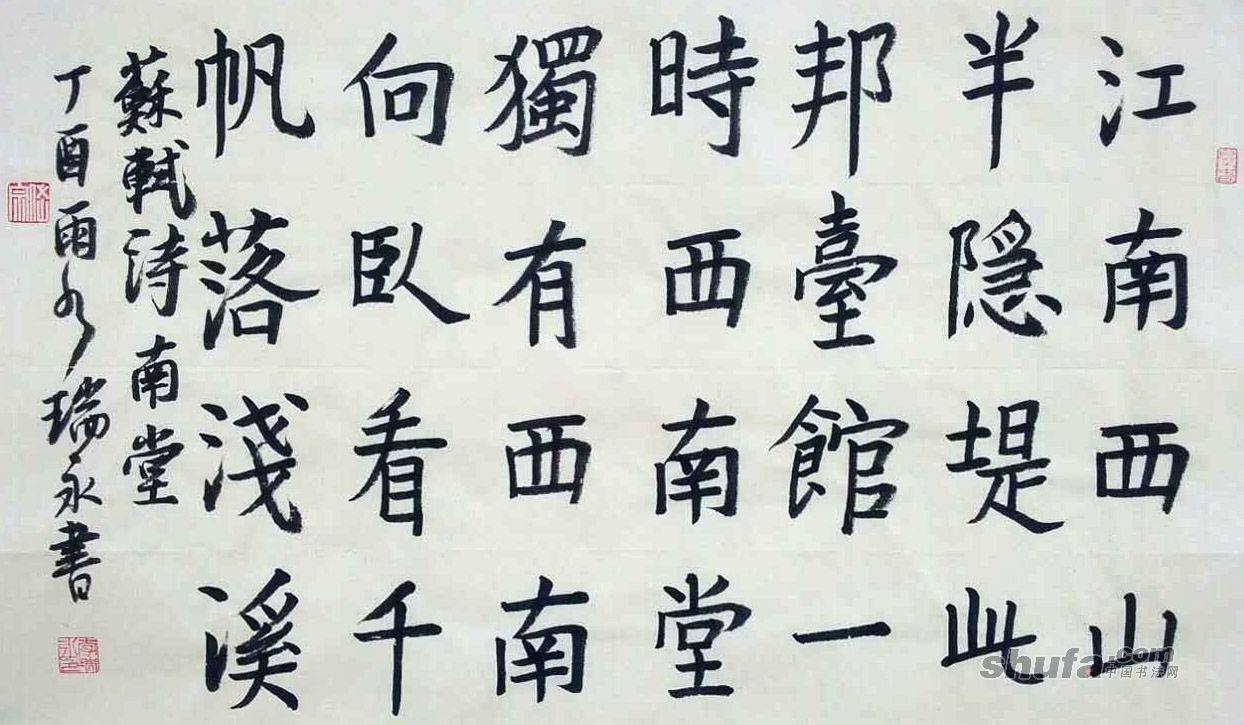 江南西山
半隱堤此
邦臺館一
時西南堂
獨有西南
向臥看千
帆落淺溪
蘇軾詩南堂
丁酉雨水瑞永書
shufa.com
中国书法网